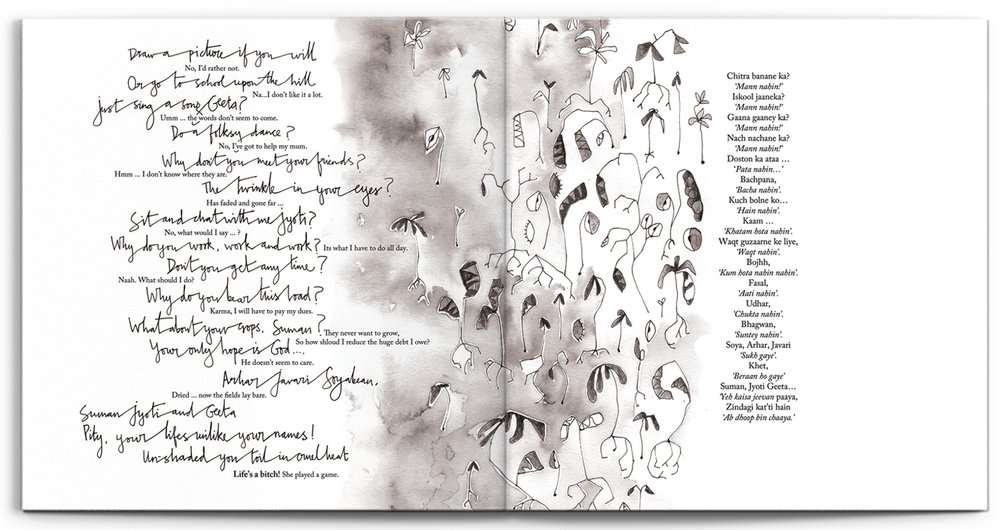 Draw a picture if you will
No, I'd rather not.
Or go to school upon the hill
Na...I don't like it a lot.
Just sing a song Geeta?
Umm ... the words don't seem to come.
Do a folksy dance?
No, I've got to help my mum.
Why don't you meet your friends?
Hmm ... I don't know where they are.
The twinkle in your eyes?
Has faded and gone far ...
Sit and chat with me Jyoti?
No, what would I say ... ?
Why do you work, work and work? Its what I have to do all day.
Don't you get any time?
Naah. What should I do?
Why do you bear this load?
Karma, I will have to pay my dues.
What about your crops, Suman?
They never want to grow,
So how shlould I reduce the huge debt I owe?
Your only hope is God....
He doesn't seem to care.
Arhar Javari Soyabean,
Dried ... now the fields lay bare.
Suman Jyoti and Geeta
Pity, your lifes unlike your names!
Un-shaded you toil in cruel heat
Life's a bitch! She played a game.
Chitra banane ka?
'Mann nahin!'
Iskool jaaneka?
'Mann nahin!'
Gaana gaaney ka?
'Mann nahin!'
Nach nachane ka?
'Mann nahin!'
Doston ka ataa ...
'Pata nahin...'
Bachpana,
'Bacha nahin'.
Kuch bolne ko...
'Hain nahin'.
Kaam ...
'Khatam hota nahin'.
Waqt guzaarne ke liye,
'Waqt nahin'.
Bojhh,
'Kum hota nahin nahin'.
Fasal,
'Aati nahin'.
Udhar,
'Chukta nahin'.
Bhagwan,
'Suntey nahin'.
Soya, Arhar, Javari
'Sukh gaye'.
Khet,
'Beraan ho gaye'
Suman, Jyoti Geeta...
'Yeh kaisa jeevan paaya,
Zindagi kat'ti hain
'Ab dhoop bin chaaya.'